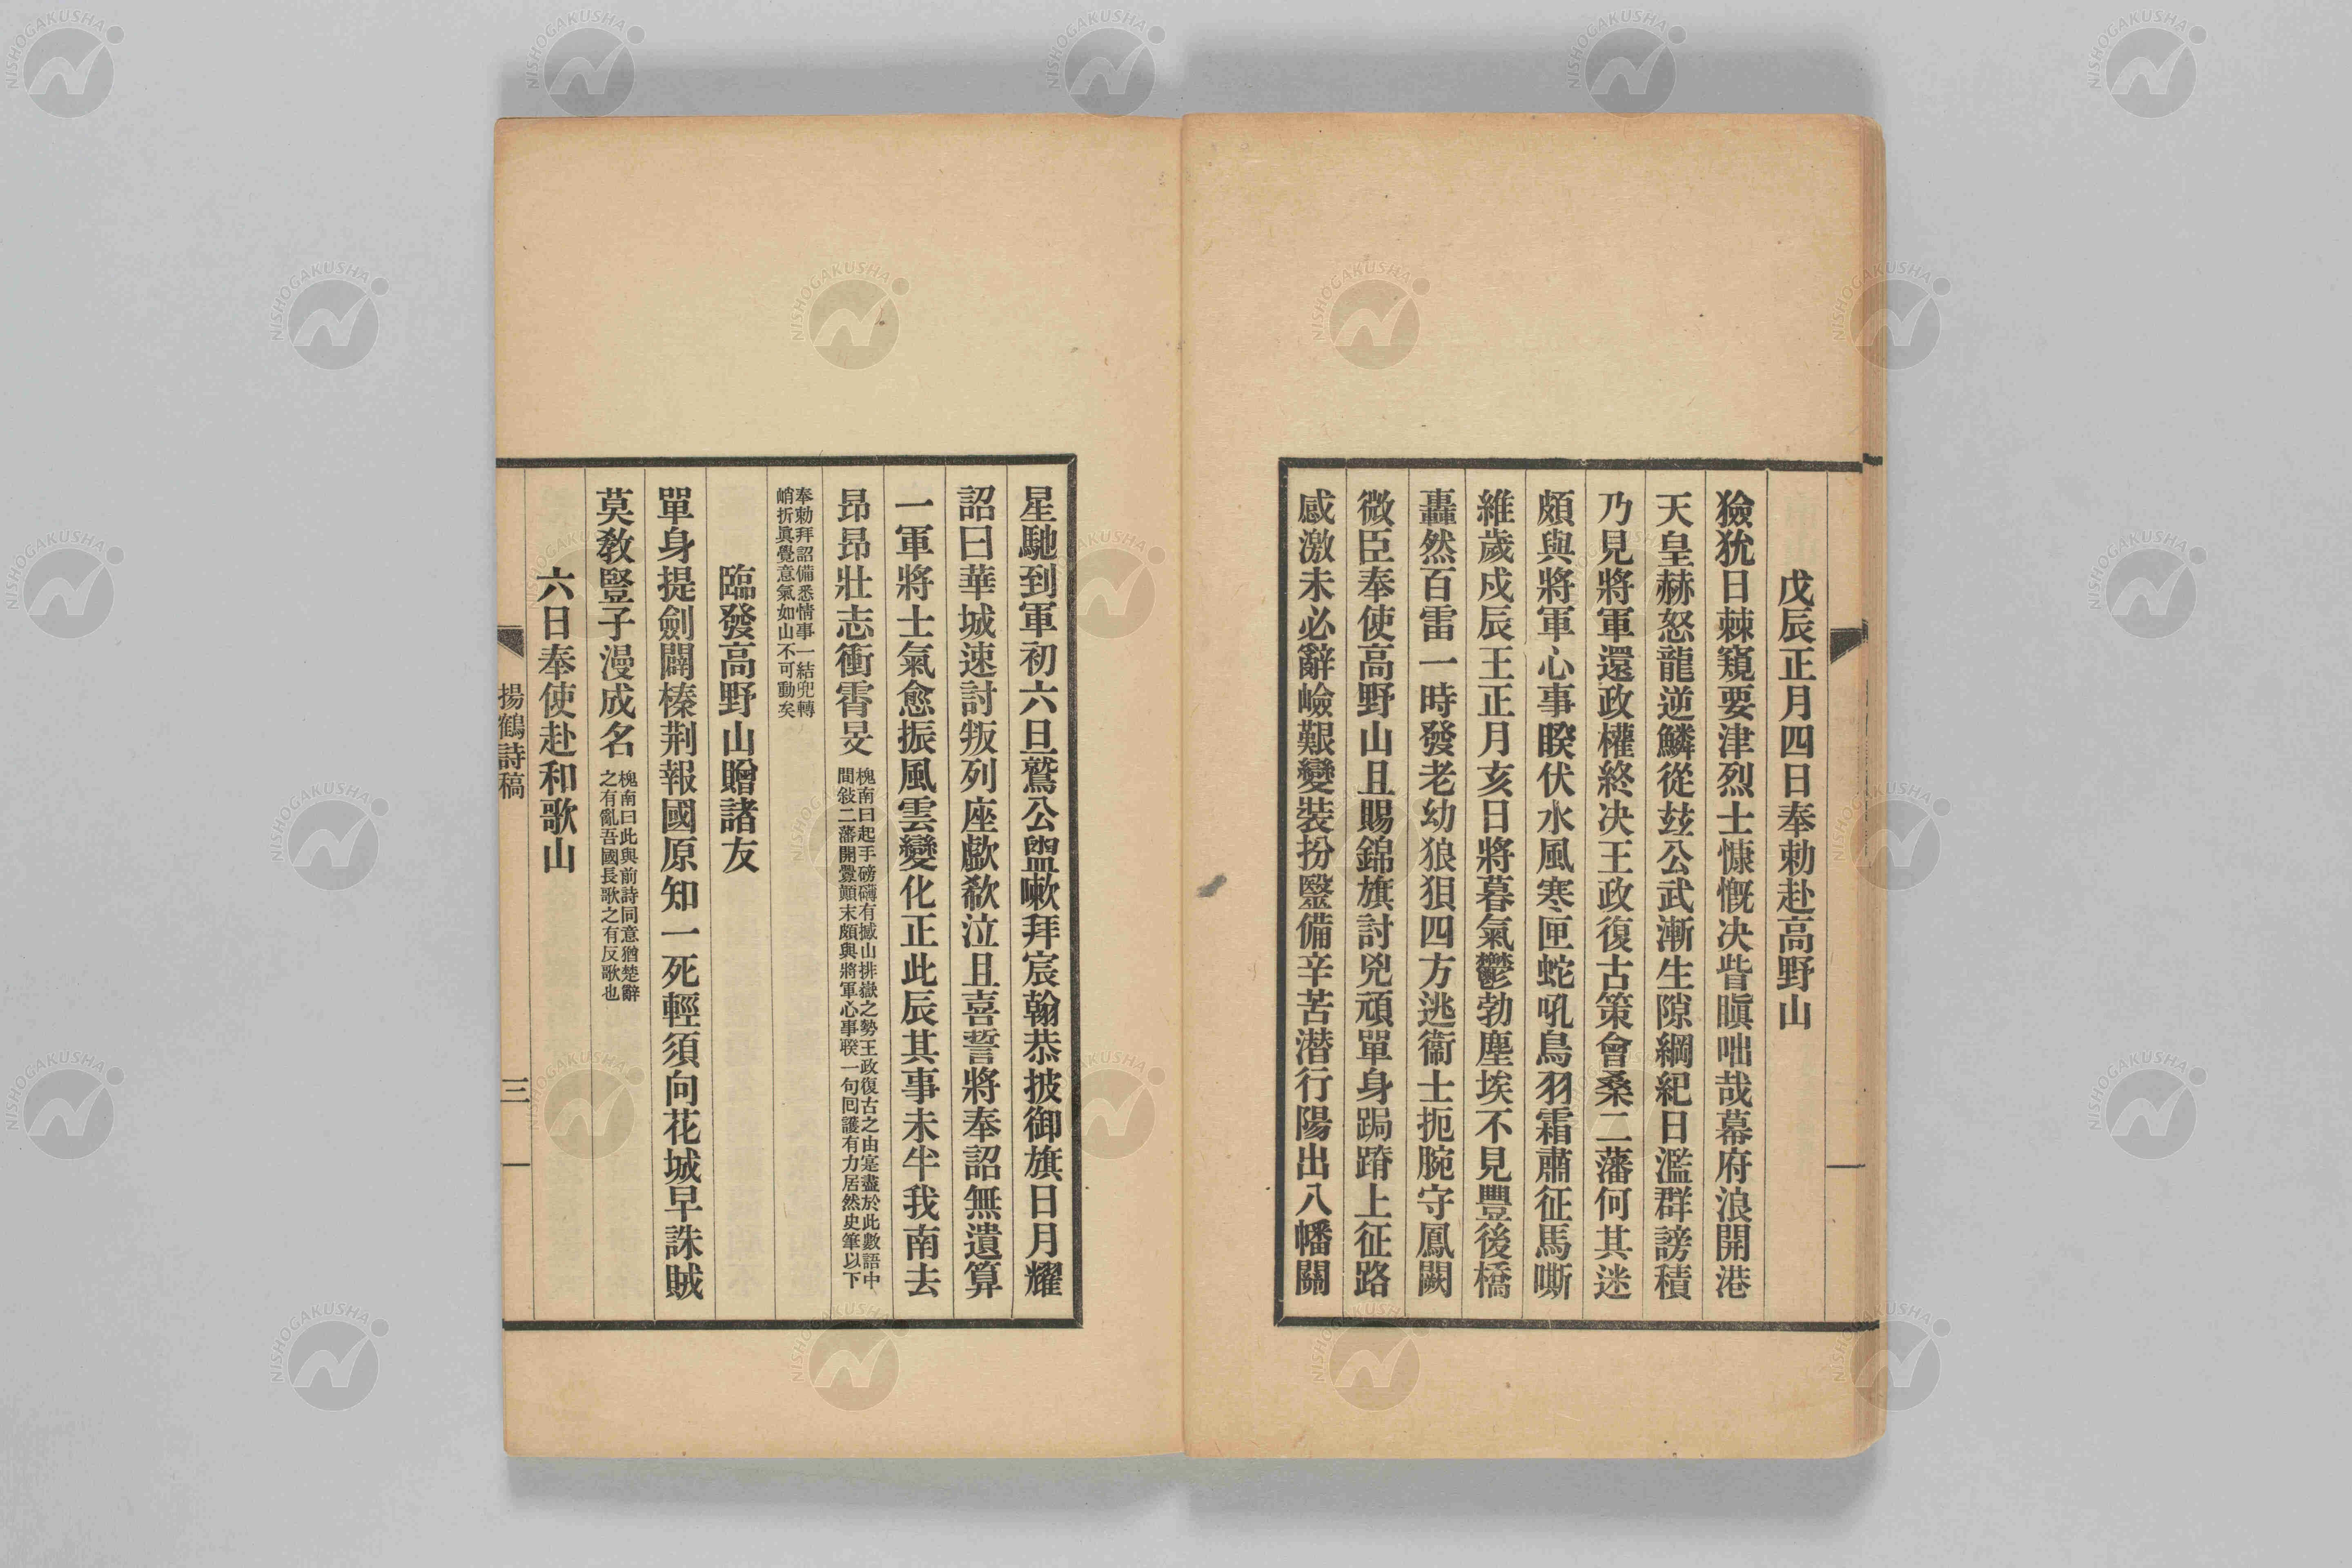 戊辰正月四日奉勅赴高野山
獫狁日棘窺要津烈士慷慨決眥瞋咄哉幕府浪開港
天皇赫怒龍逆鱗從玆公武漸生隙綱紀日濫群謗積
乃見將軍還政權終決王政復古策會桑二藩何其迷
頗與將軍心事睽伏水風寒匣蛇吼鳥羽霜肅征馬嘶
維歲戍辰王正月亥日將暮氣鬱勃塵埃不見豐後橋
轟然百雷一時發老幼狼狽四方逃衞士扼腕守鳳闕
微臣奉使高野山且賜錦旗討兇頑單身跼蹐上征路
感激未必辭嶮艱變裝扮毉備辛苦潜行陽出八幡關
星馳到軍初六旦鷲公盥嗽拜宸翰恭披御旗日月耀
詔曰華城速討叛列座歔欷泣且喜誓將奉詔無遺算
一軍將士氣愈振風雲變化正此辰其事未半我南去
昂昂壯志衝霄旻
槐南曰起手磅礴有撼山排嶽之勢王政復古之由寔盡於此數語中
間敍二藩開釁顚末頗與將軍心事睽一句囘護有力居然史筆以下
奉勅拜詔備悉情事一結兜轉
峭折眞覺意氣如山不可動矣
臨發高野山贈諸友
單身提劍闢榛荆報國原知一死輕須向花城早誅賊
莫敎豎子漫成名
槐南曰此與前詩同意猶楚辭
之有亂吾國長歌之有反歌也
六日奉使赴和歌山
揚鶴詩稿
三
NISHOGAKUSHA